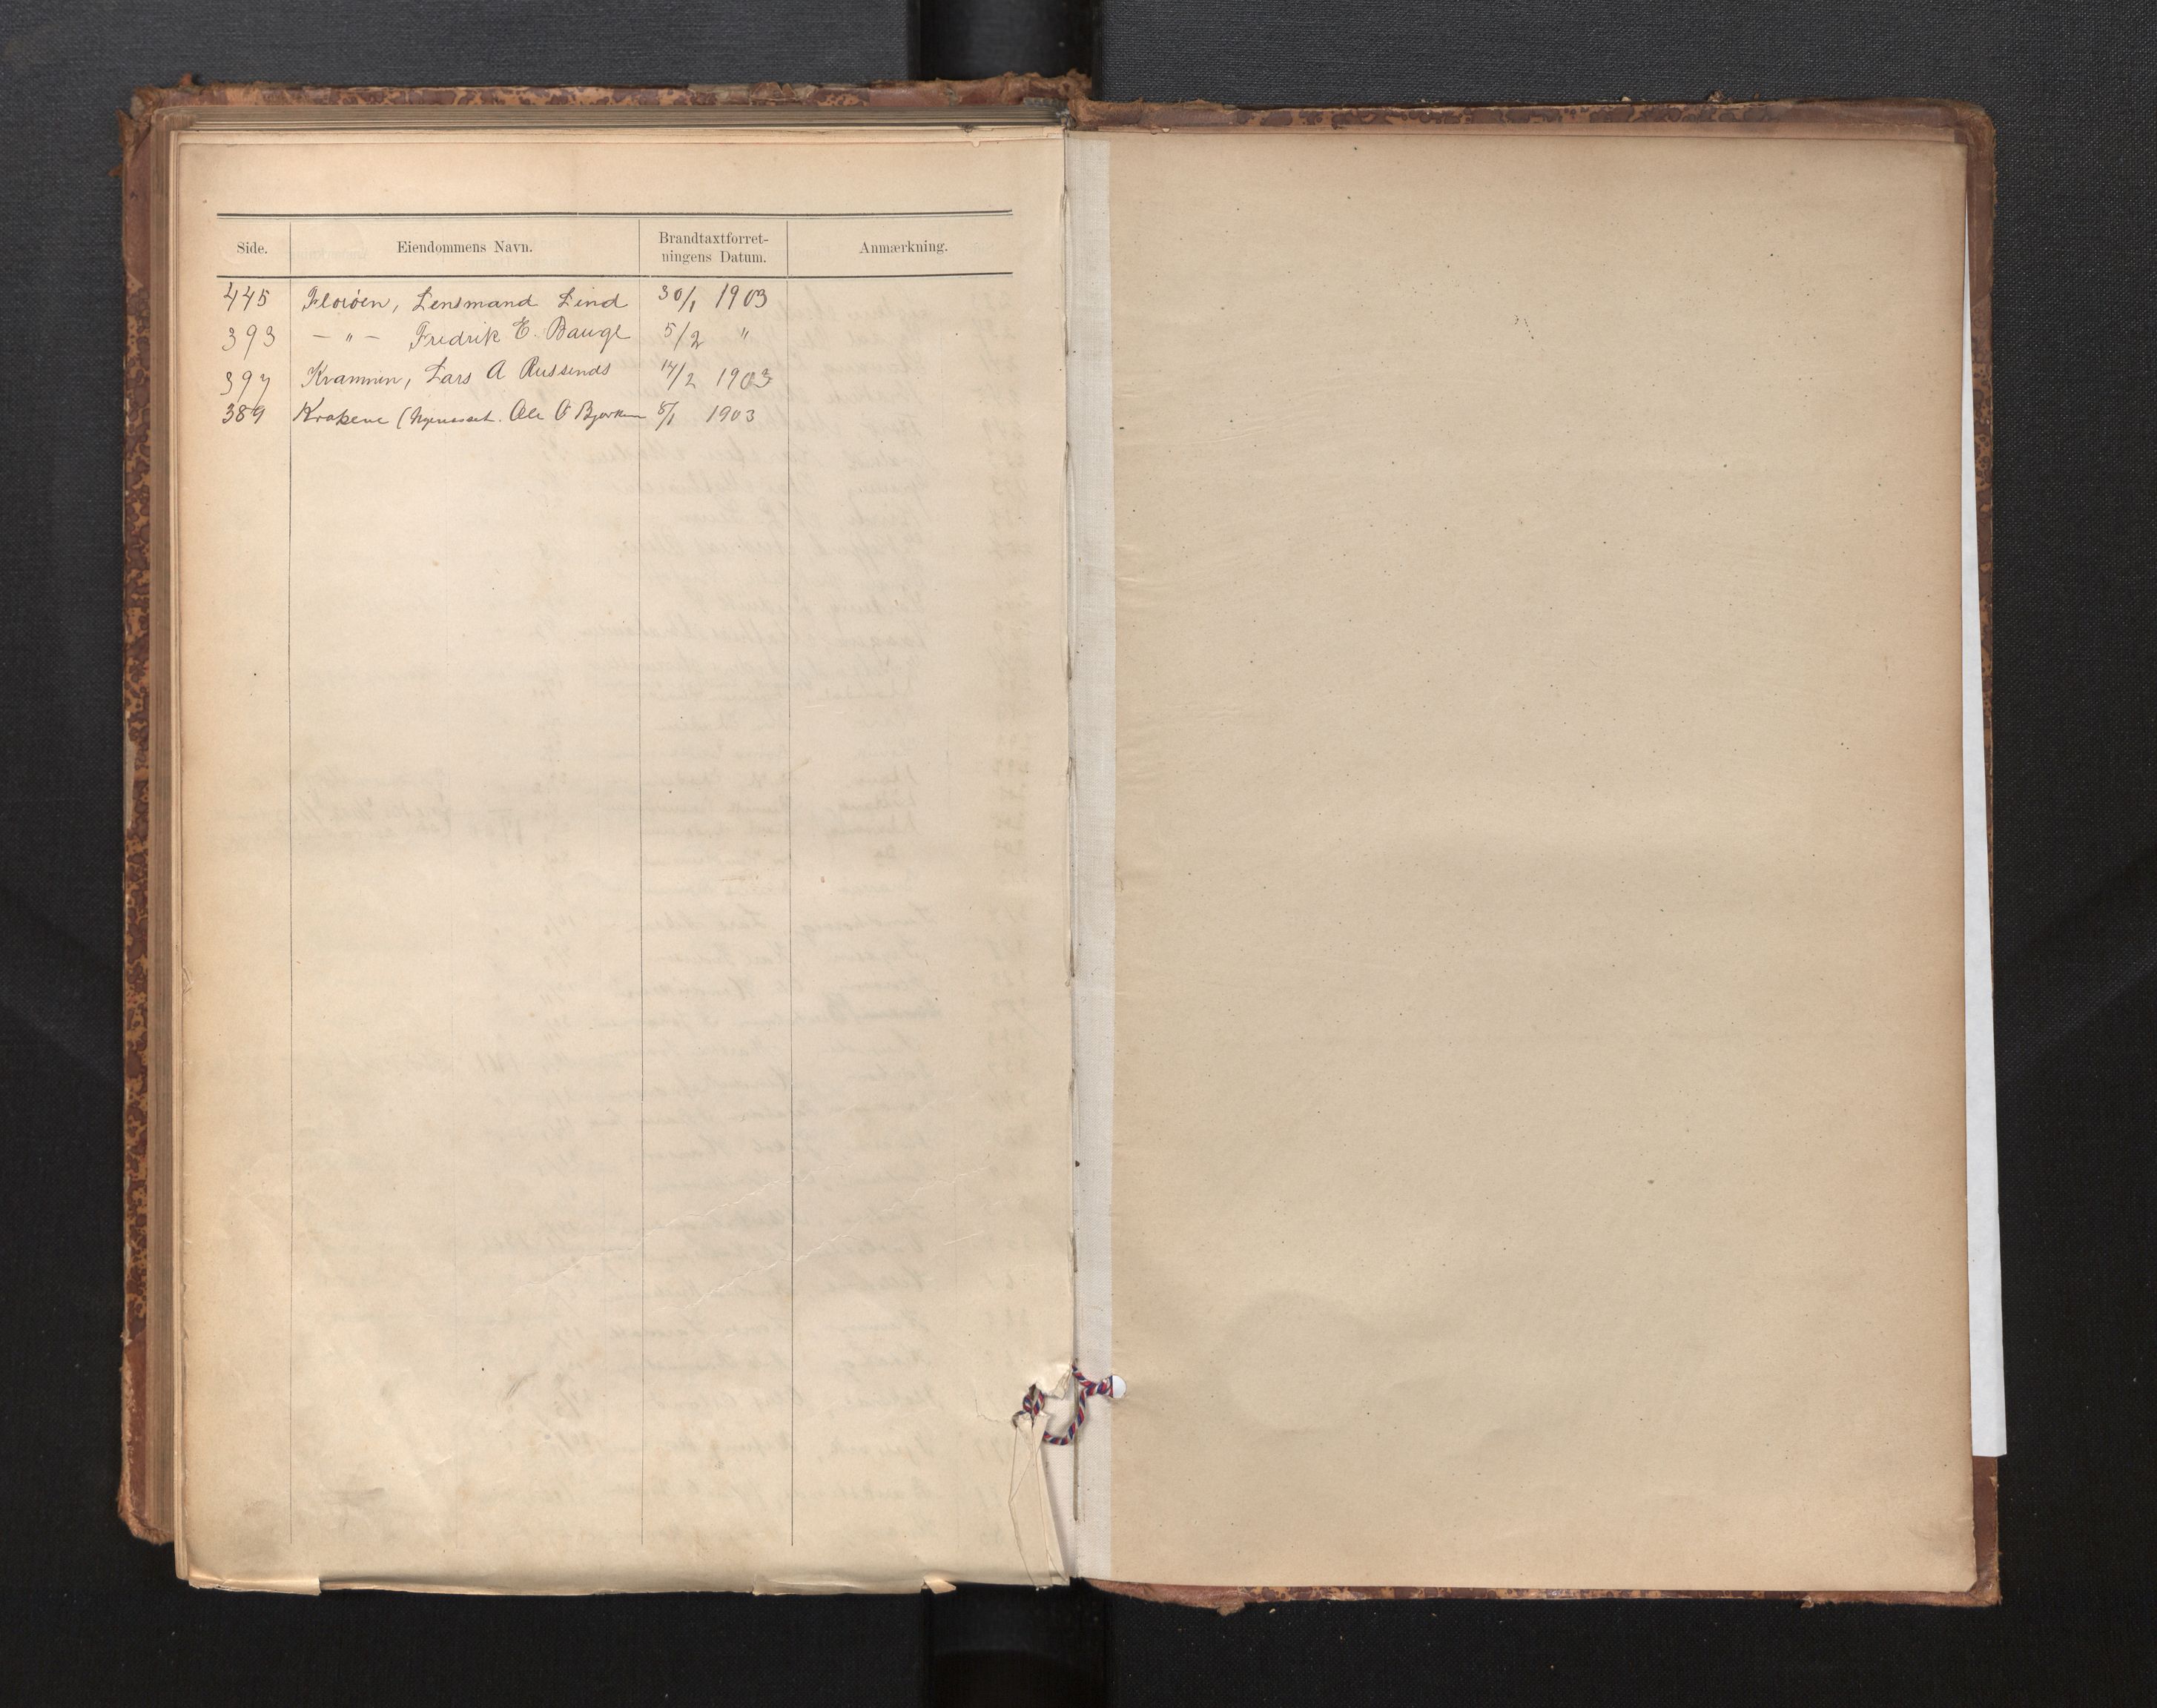 Side. Eiendommens Navn. Brandtaxtforret-
ningens Datum. Anmærkning.
445 Florøen, Lensmand Lind 30/1 1903
393 — " — Fredrik E. Baugl 5/2 "
397 Kramnin, Lars A Russends 14/2 1903
389 Krakene ( Ole O Bjorkum 5/1 1903